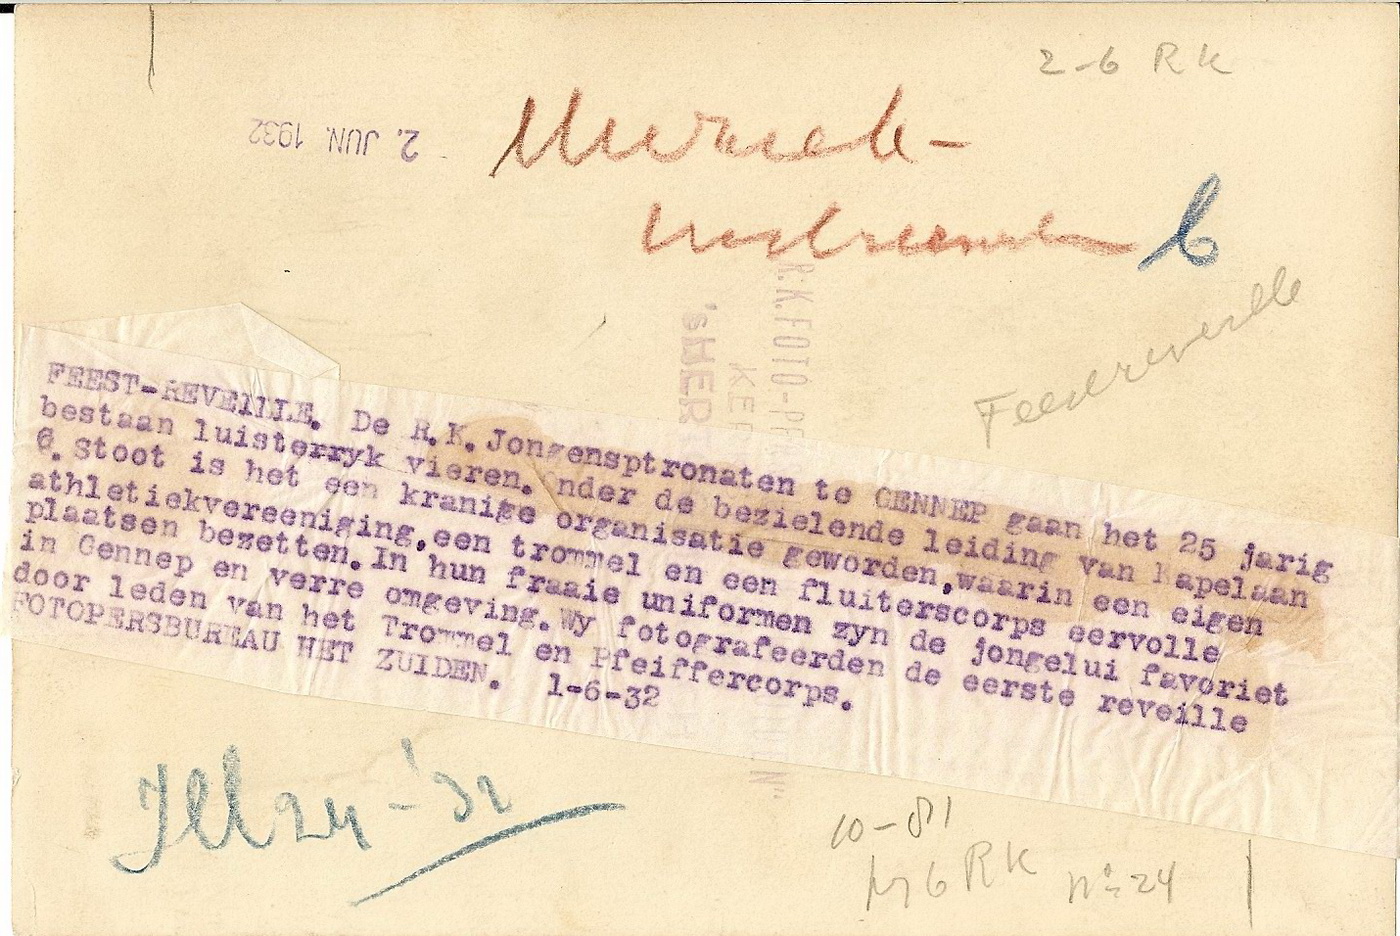 2-6 RK
2. JUN. 1932
Muziek-
instrumenten
Feestreveille
R.K. FOTO-PE
'sHER
FEEST-REVEILLE. De R.K. Jongensptronaten te GENNEP gaan het 25 jarig
bestaan luisterryk vieren. Onder de bezielende leiding van Kapelaan
6. Stoot is het een kranige organisatie geworden, waarin een eigen
athletiekvereeniging, een trommel en een fluiterscorps eervolle
plaatsen bezetten. In hun fraaie uniformen zyn de jongelui favoriet
in Gennep en verre omgeving. Wy fotografeerden de eerste reveille
door leden van het Trommel en Pfeiffercorps.
FOTOPERSBUREAU HET ZUIDEN. 1-6-32
Ill 24-'32
10-81
6 RK No 24